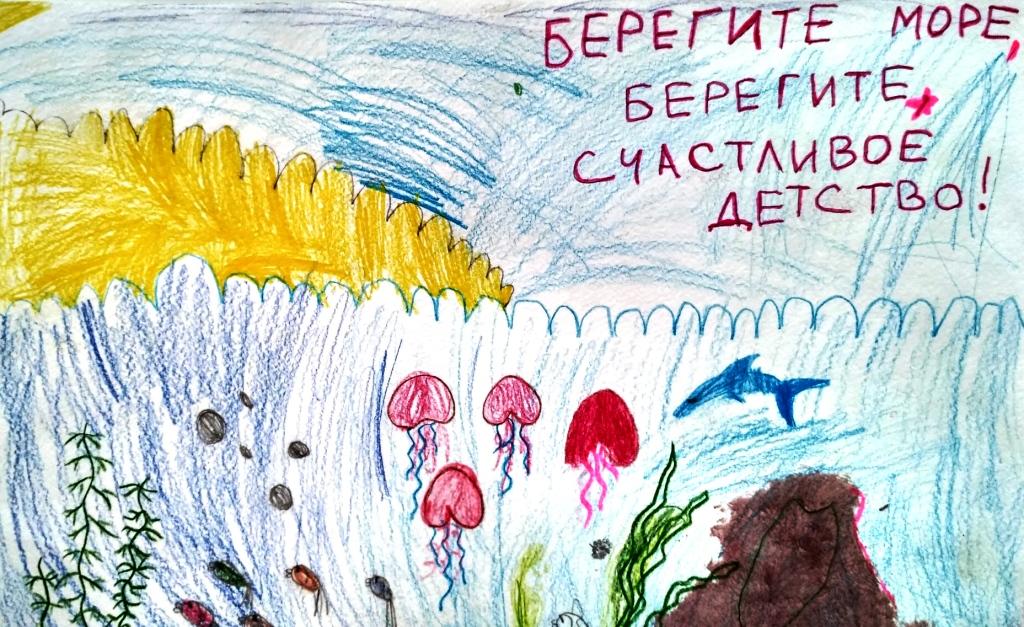 БЕРЕГИТЕ МОРЕ,
БЕРЕГИТЕ
СЧАСТЛИВОЕ
ДЕТСТВО!